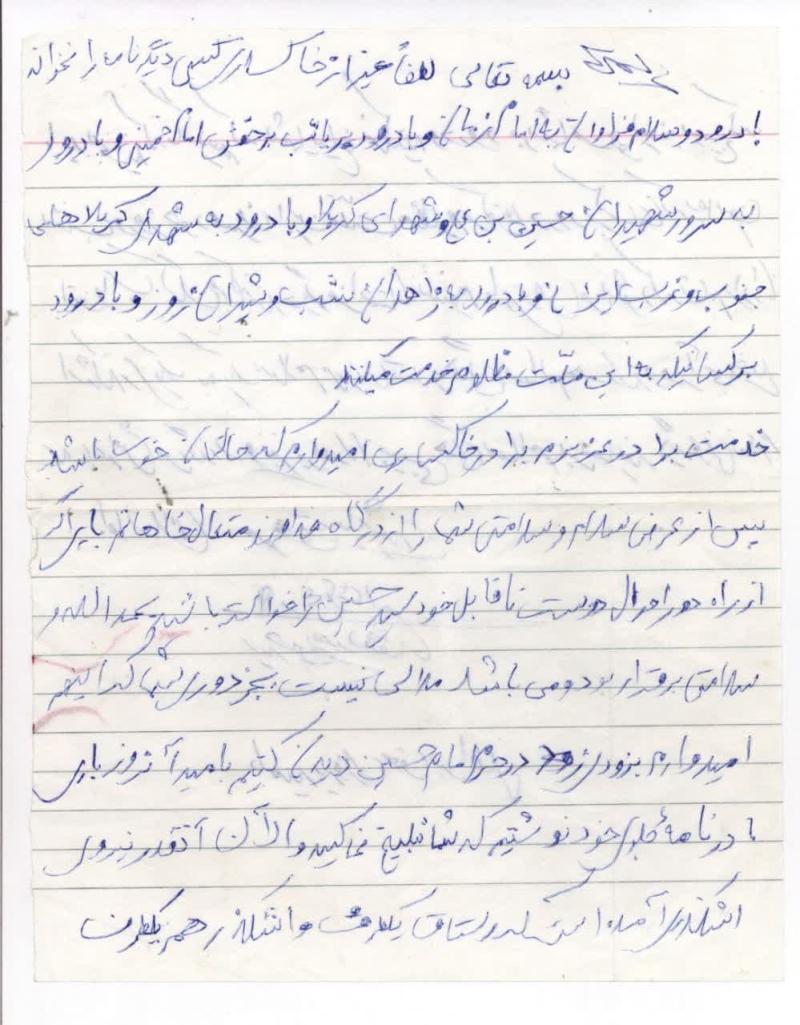 بسمه تعالی لطفاً غیر از خاکساری کسی دیگر نامه را نخواند
با درود و سلام فراوان به امام زمان و با درود بر نائب برحقش امام خمینی و با درود
به سرور شهیدان حسین بن علی و شهدای کربلا و با درود به شهدای کربلاهای
جنوب و غرب ایران و با درود به زاهدان شب و شیران روز و با درود
بر کسانیکه به این ملّت مظلوم خدمت میکنند
خدمت برادر عزیزم برادر خاکساری امیدوارم که حالتان خوب باشد
پس از عرض سلام و سلامتی شما را از درگاه خداوند متعال خواهانم باری اگر
از راه دور احوال دوست ناقابل خود سید حسین را خواسته باشید بحمدالله
سلامتی برقرار بود و می باشد ملالی نیست بجز دوری شما که آنهم
امیدوارم بزودی زود در حرم امام حسین دیدار کنیم بامید آنروز باری
در نامه قبلی خود نوشتیم که شما تبلیغ نمیکنید والآن آنقدر نیروی
اشکذری آمده است که رستاق یکطرف و اشکذر هم یکطرف